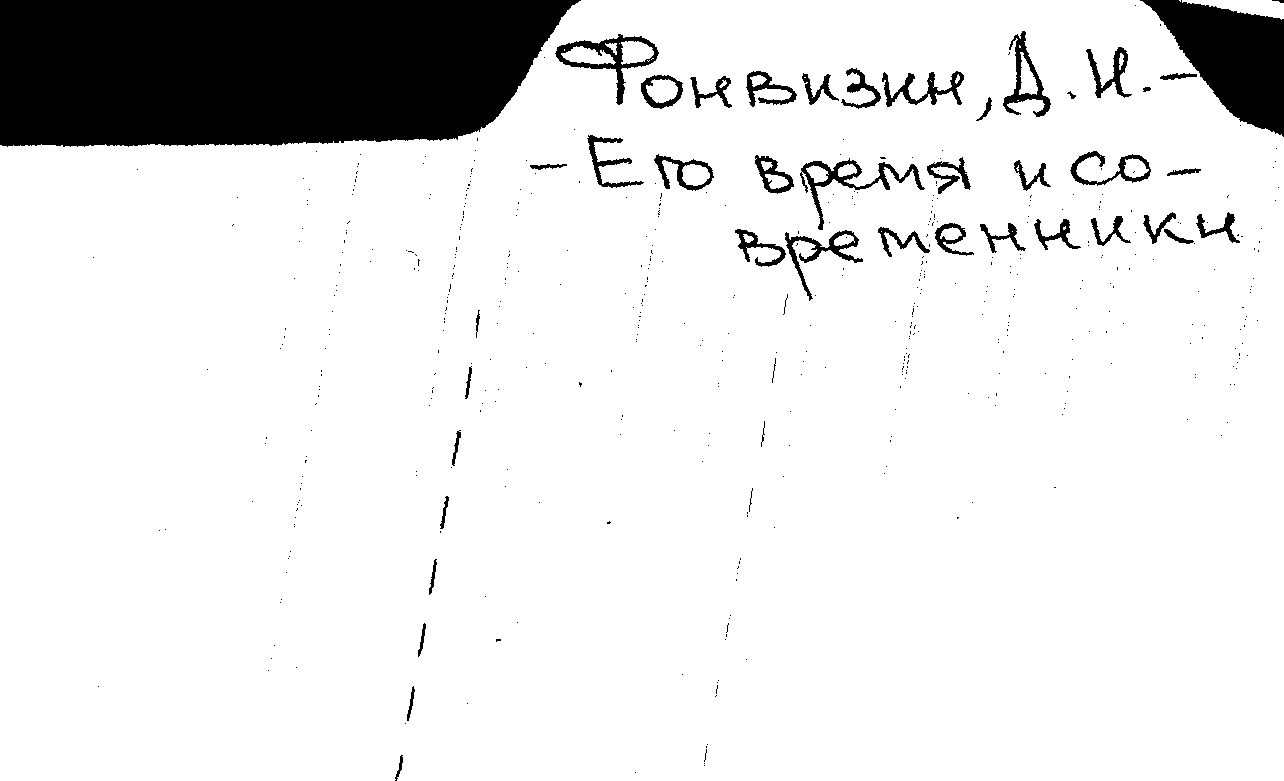 Фонвизин, Д. И. –
– Его время и со-
временники